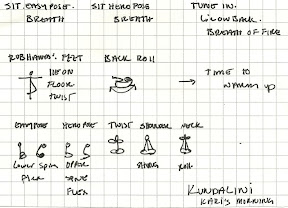 SIT. EASY POSE.
BREATH
SIT HERO POSE
BREATH
TUNE IN.
LOW BACK.
BREATH OF FIRE
RUB HANDS. FEET
LIE ON
FLOOR
TWIST
BACK ROLL
TIME TO
WARM UP
EASY POSE
LOWER SPINE
FLEX
HERO POSE
UPPER
SPINE
FLEX
TWIST
SHOULDER
SHRUG
NECK
ROLL
KUNDALINI
KARI'S MORNING